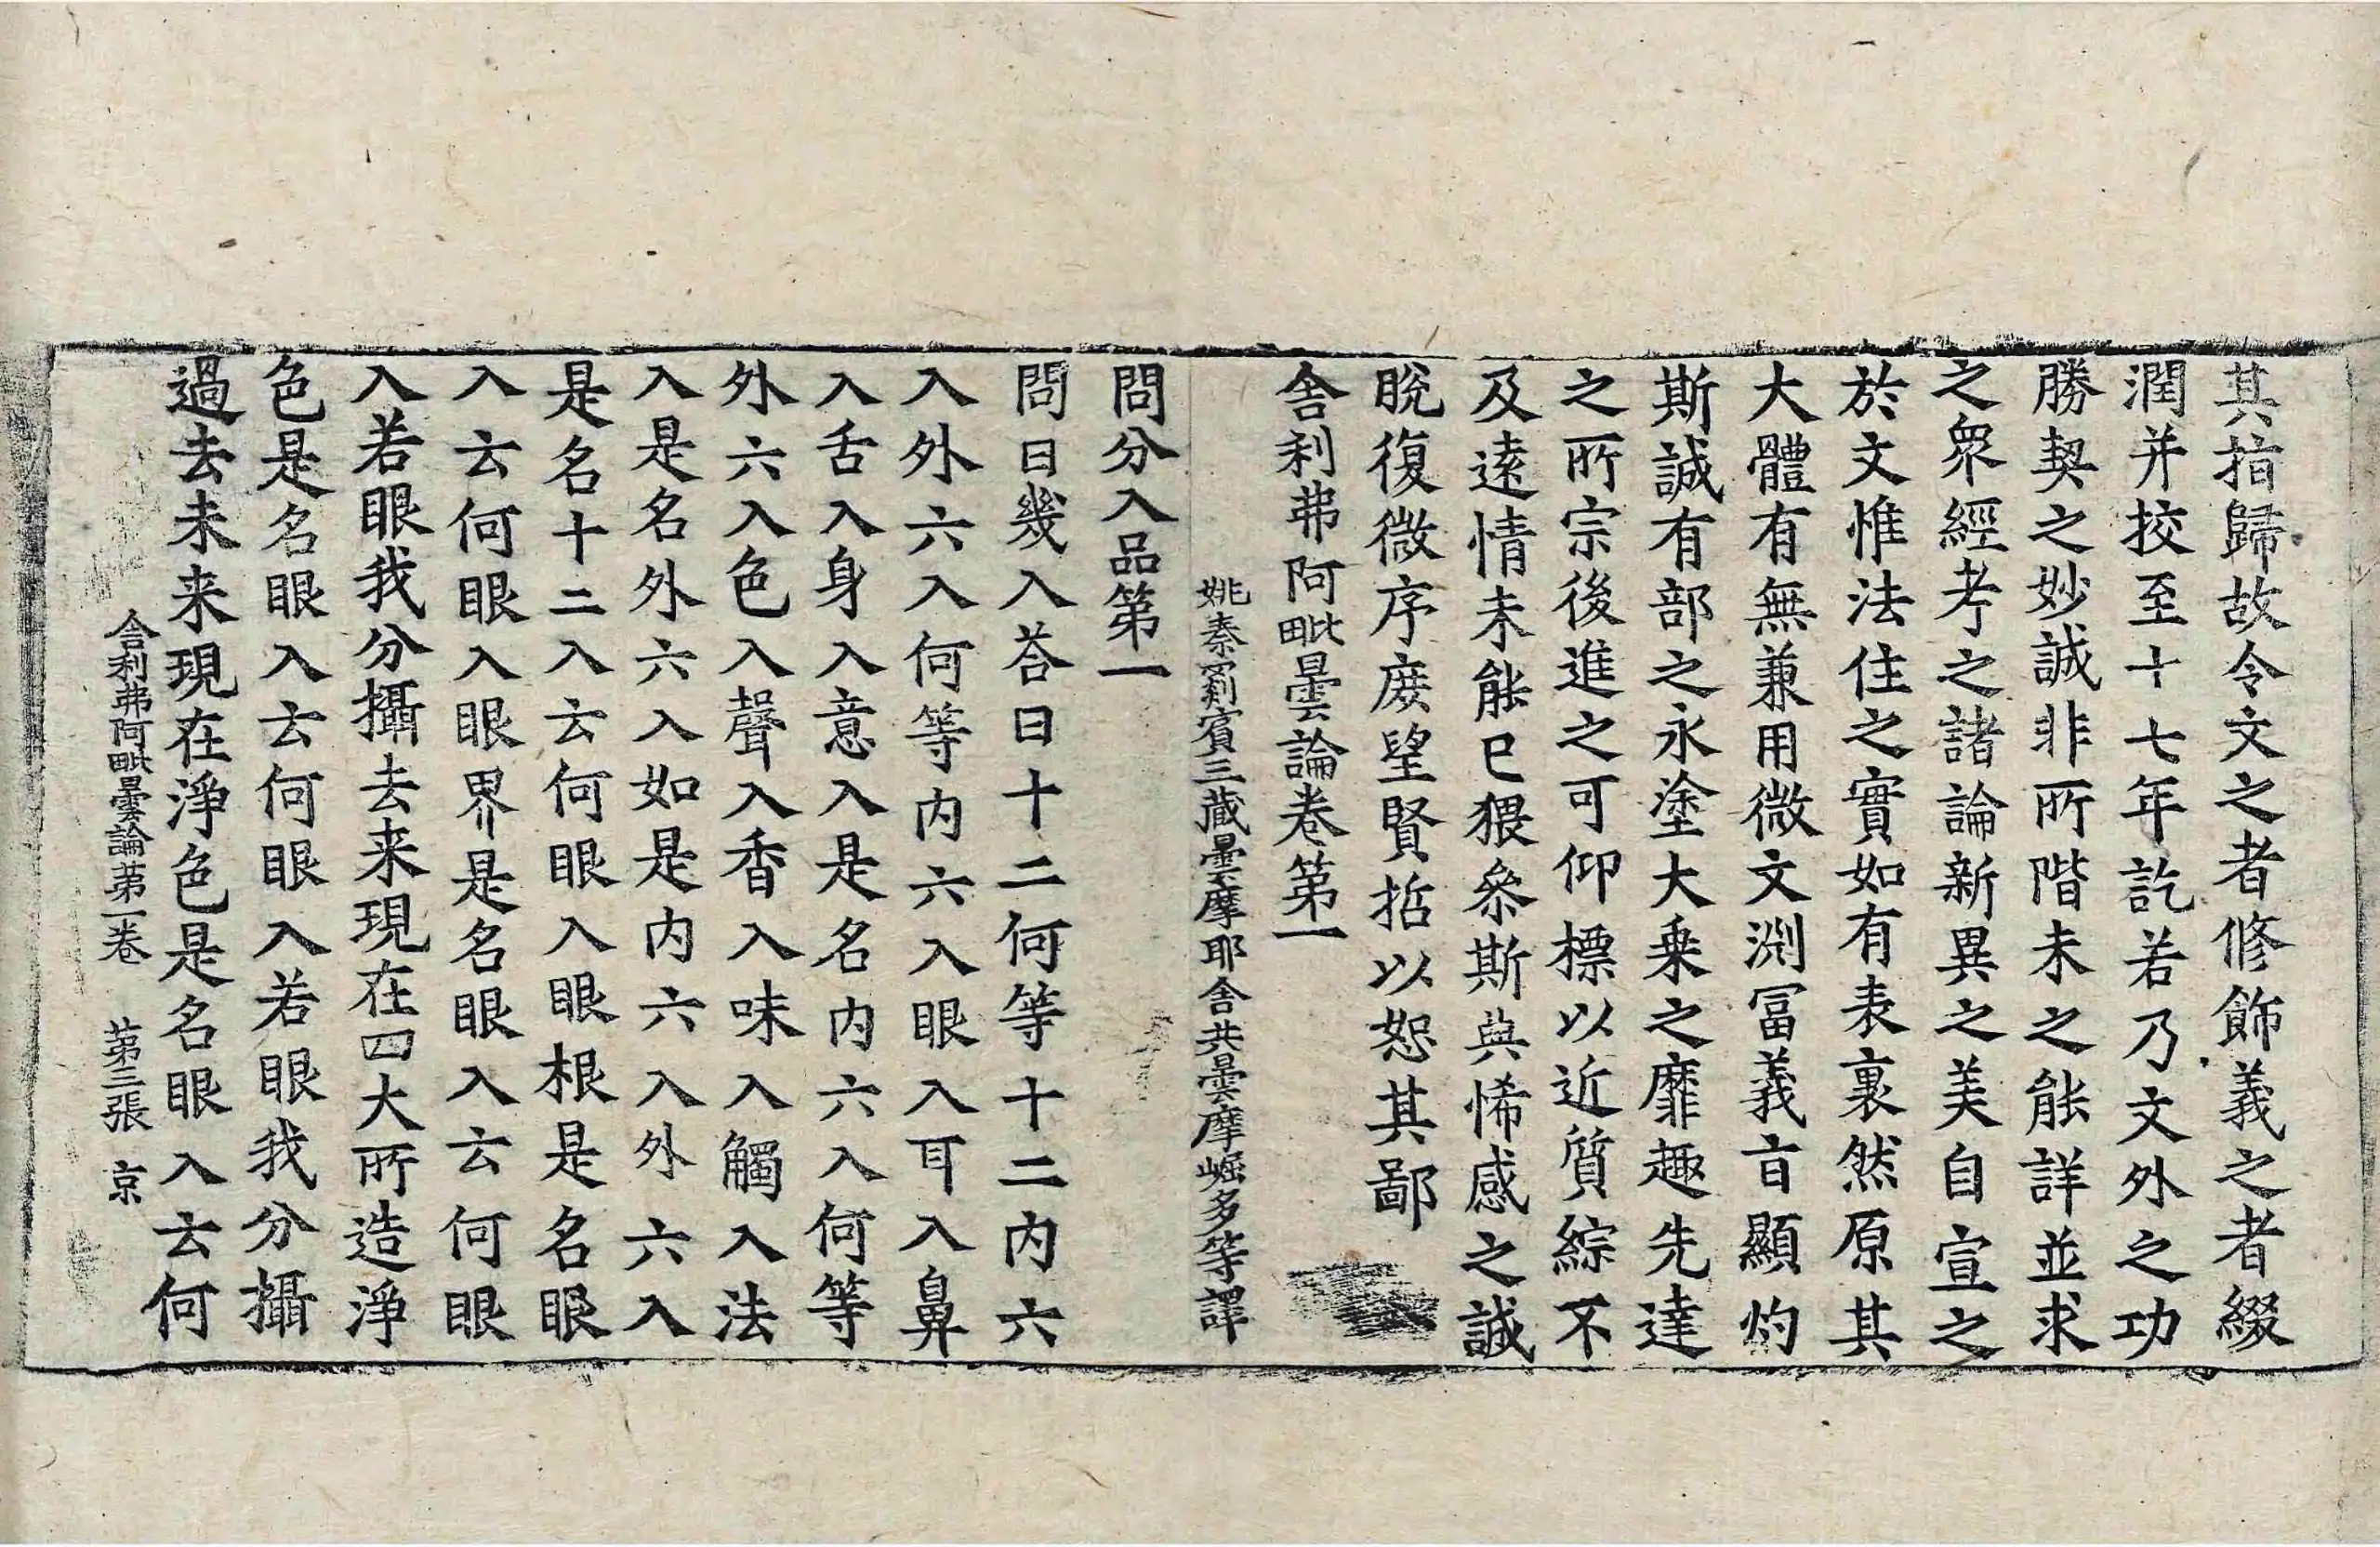 其指歸故令文之者修飾義之者綴
潤并挍至十七年訖若乃文外之功
勝契之妙誠非所階未之能詳並求
之衆經考之諸論新異之美自宣之
於文惟法住之實如有表裏然原其
大體有無兼用微文淵冨義旨顯灼
斯誠有部之永塗大乗之靡趣先達
之所宗後進之可仰標以近質綜不
及逺情未能已猥叅斯典悕感之誠
晩復微序庻望賢哲以恕其鄙
舍利弗阿毗曇論卷第一
姚秦罽賓三藏曇摩耶舍共曇摩崛多等譯
問分入品第一
問曰幾入荅曰十二何等十二内六
入外六入何等内六入眼入耳入鼻
入舌入身入意入是名内六入何等
外六入色入聲入香入味入觸入法
入是名外六入如是内六入外六入
是名十二入云何眼入眼根是名眼
入云何眼入眼界是名眼入云何眼
入若眼我分攝去来現在四大所造淨
色是名眼入云何眼入若眼我分攝
過去未来現在淨色是名眼入云何
舍利弗阿毗曇論苐一卷 苐三張 京